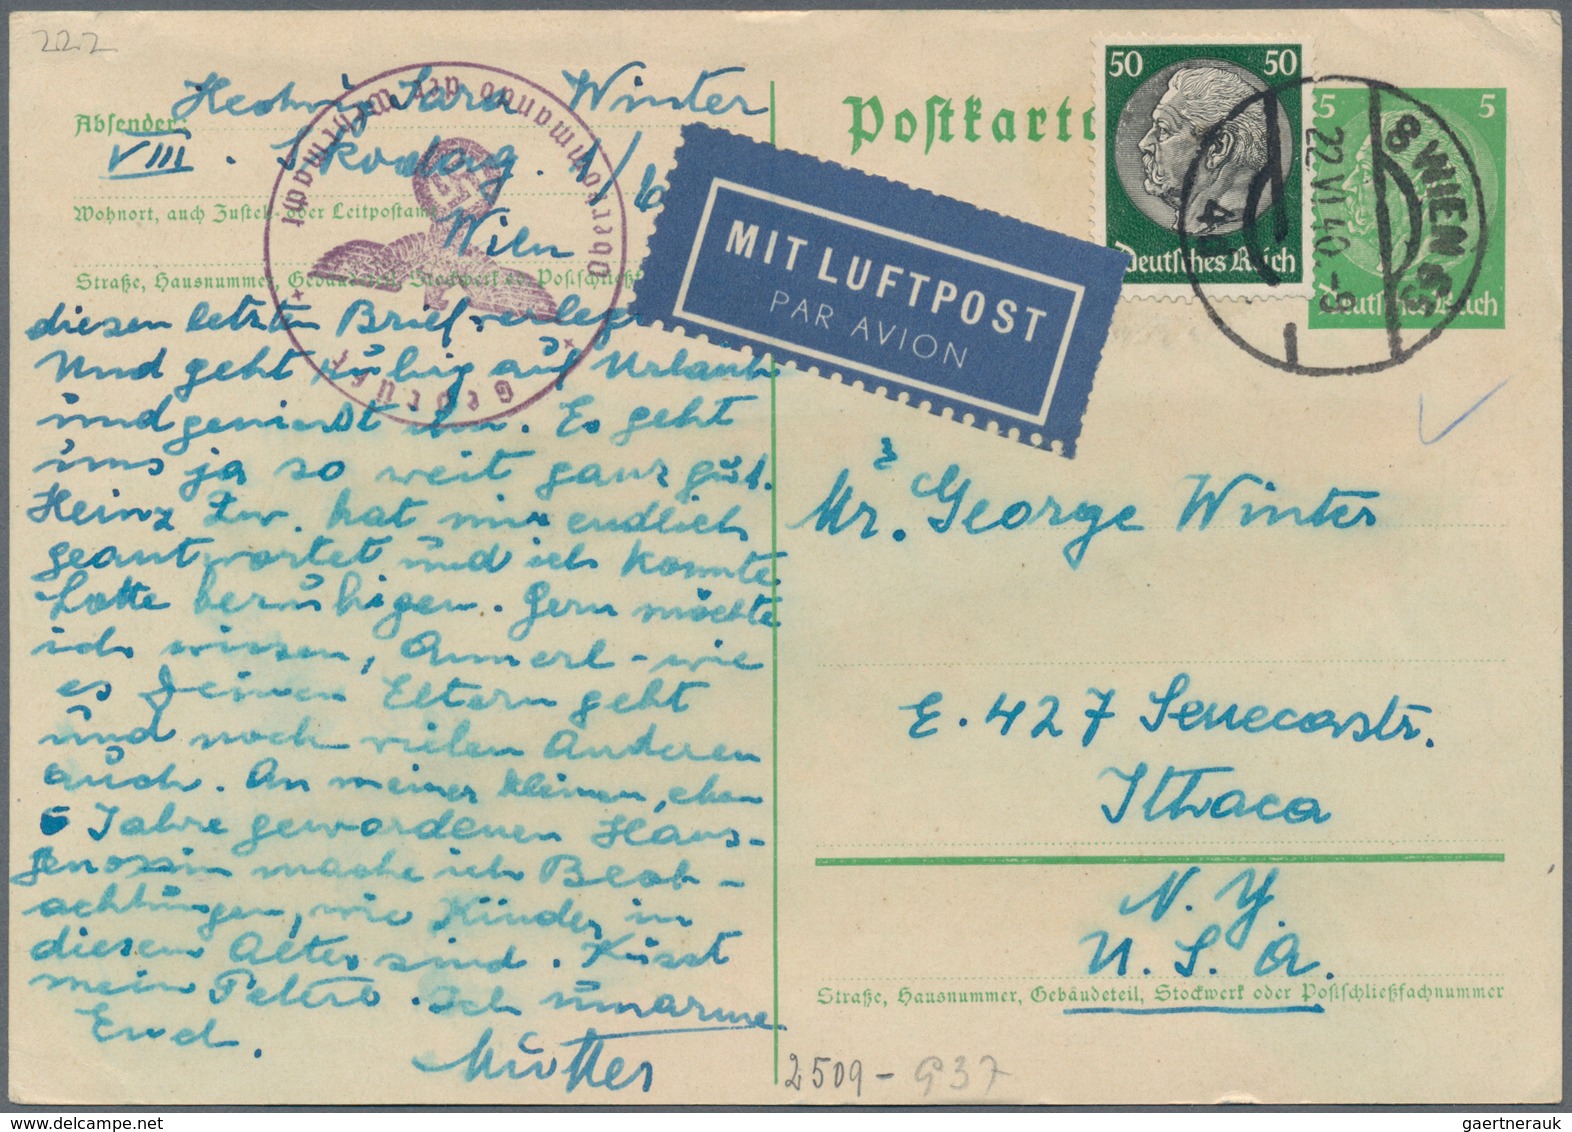 222
Hedwig Sara Winter
Absender:
VIII. Skodag. 1/
Wohnort, auch Zustell- oder Leitpostamt
Wien
Straße, Hausnummer, Gebäudeteil, Stockwerk od. Postschließf
Oberkommando der Wehrmacht
Geprüft
diesen letzten Brief
Und geht ruhig auf Urlaub
und geniesst ihn. Es geht
uns ja so weit ganz gut.
Heinz Zw. hat mir endlich
geantwortet und ich konnte
Lotte beruhigen. Gern möchte
ich wissen, Annerl - wie
es Deinen Eltern geht
und noch vielen Anderen
auch. An meiner kleinen, eben
5 Jahre gewordenen Haus-
genossin mache ich Beob-
achtungen, wie Kinder in
diesem Alter sind. Küsst
mein Peterl. Ich umarme
Euch.
Mutter
Postkarte
MIT LUFTPOST
PAR AVION
50 50
Deutsches Reich
5 5
Deutsches Reich
8 WIEN 65
22.VI.40.-9
Mr. George Winter
E. 427 Senecastr.
Ithaca
N. Y.
U. S. A.
Straße, Hausnummer, Gebäudeteil, Stockwerk oder Postschließfachnummer
2509 - G37
gaertnerauk@delcampe.net